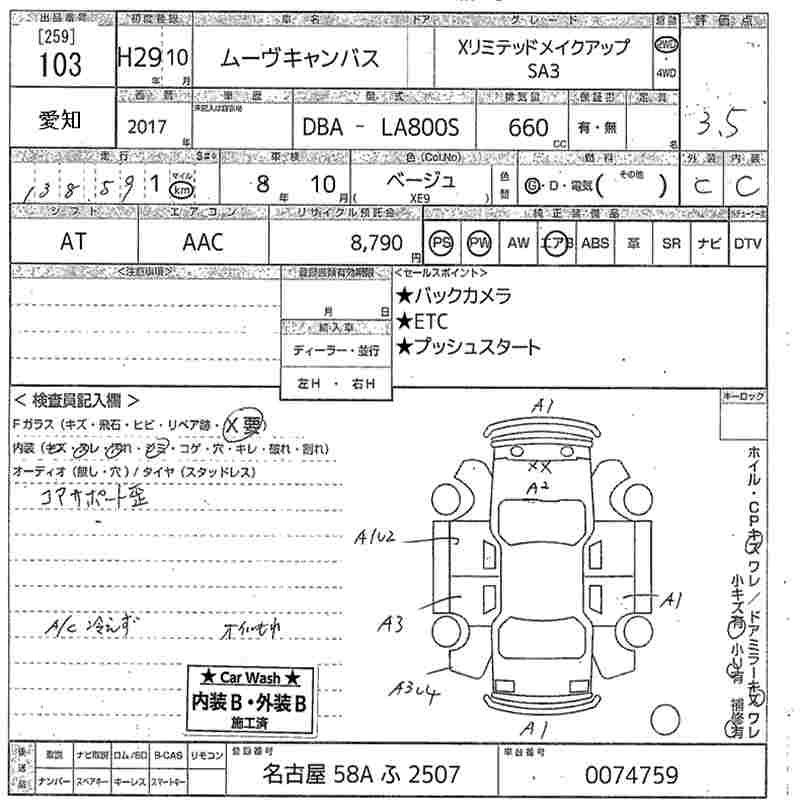 出品番号 初度登録 車名 ドア グレード 評価点
[259]
103 H29年 10月 ムーヴキャンバス Xリミテッドメイクアップ 2WD
SA3 4WD
3.5
西暦 車歴 型式 排気量 保証書 定員
愛知 2017年 DBA - LA800S 660CC 有・無 名
走行 車検 色(Col.No) 燃料 外装 内装
138,591 マイル km 8年 10月 ベージュ 色替 G・D・電気( その他 ) C C
( XE9 )
シフト エアコン リサイクル預託金 純正装備品
AT AAC 8,790円 PS PW AW エアB ABS 革 SR ナビ DTV
<注意事項> 登録書類有効期限 <セールスポイント>
月 日 ★バックカメラ
輸入車 ★ETC
ディーラー・並行 ★プッシュスタート
左H ・ 右H
キーロック
< 検査員記入欄 >
Fガラス (キズ・飛石・ヒビ・リペア跡・X要)
内装 (キズ・スレ・汚れ・シミ・コゲ・穴・キレ・破れ・割れ)
オーディオ (無し・穴) / タイヤ (スタッドレス)
コアサポート歪
A1
XX
A2
A1U2
A3 A1
A/C 冷えず オイルもれ
A3U4
A1
ホイル・CPキズワレ/ドアミラーキズワレ
小キズ有 小U有 補修有
★ Car Wash ★
内装B・外装B
施工済
後送品 取説 ナビ取説 ロム/SD B-CAS リモコン 登録番号 車台番号
ナンバー スペアキー キーレス スマートキー 名古屋 58A ふ 2507 0074759